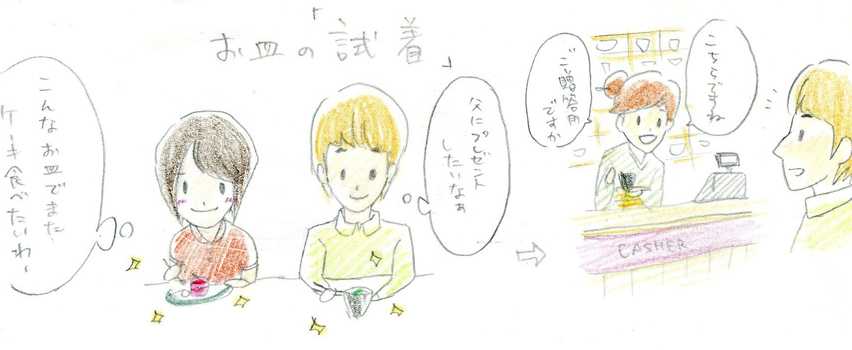 お皿の「試着」
こんなお皿でまた、
ケーキ食べたいわ〜
父にプレゼント
したいなぁ
こちらですね
ご贈答用
ですか
CASHER